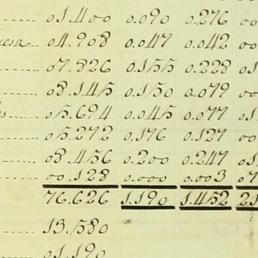 01.400 0.090 0.276
04.908 0.047 0.042 00
07.826 0.155 0.228 01
08.145 0.150 0.079 00
05.694 0.045 0.077 01
05.272 0.176 0.127 00
08.456 0.200 0.247 01
00.128 0.000 0.003 07
76.626 1.190 1.452 21
13.580
01.190